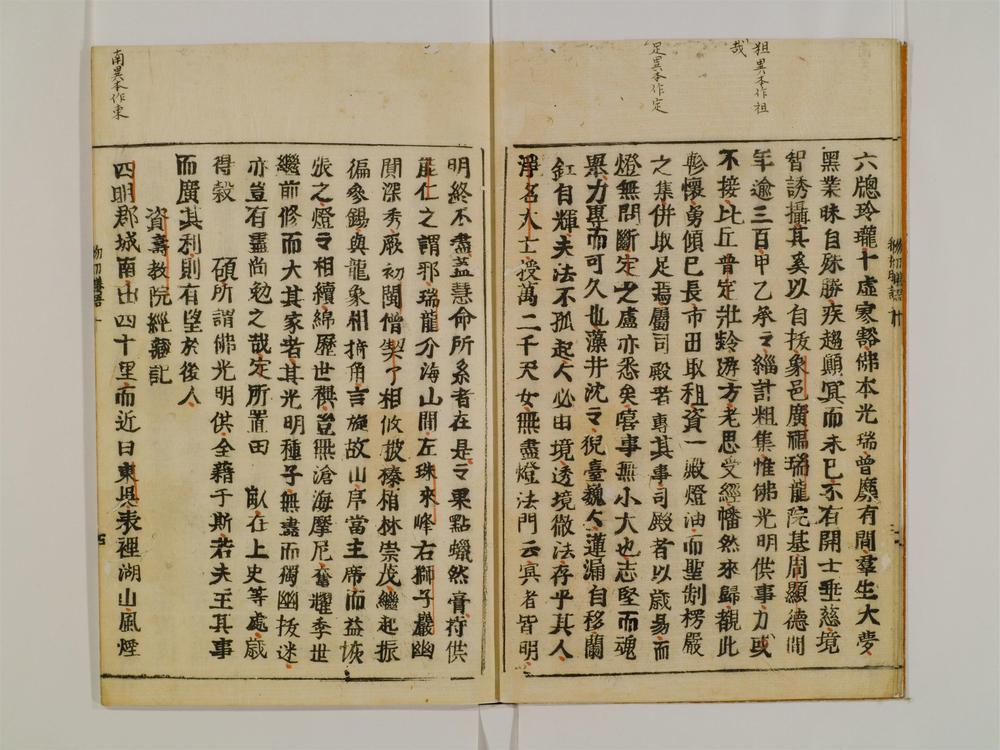 狙異本作祖
哉
足異本作定
六牕玲瓏十虚寥豁佛本光瑞曾靡有間羣生大夢
黑業昧自殊勝疾趨顚冥而未已不有開士垂慈境
智誘攝其奚以自拔象邑廣福瑞龍院基周顯德間
年逾三百甲乙承々緇計粗集惟佛光明供事力或
不接比丘普定壯齡游方老思受經幡然來歸觀此
軫懷勇傾已長市田取租資一殿燈油而聖制楞嚴
之集併取足焉屬司殿者專其事司殿者以歲易而
燈無間斷定之慮亦悉矣嘻事無小大也志堅而魂
聚力專而可久也藻井沈々猊臺巍々蓮漏自移蘭
釭自輝夫法不孤起々必由境透境徹法存乎其人
淨名大士授萬二千天女無盡燈法門云冥者皆明
南異本作東
明終不盡蓋慧命所系者在是々果點蠟然膏苻供
能仁之謂邪瑞龍分海山間左珠來峰右獅子巖幽
閴深秀厥初閩僧契了相攸披榛梢林崇茂繼起振
徧參錫與龍象相掎角言旋故山序當主席而益恢
張之燈々相續綿歷世禩豈無滄海摩尼奮耀季世
繼前修而大其家者其光明種子無盡而獨幽拔迷
亦豈有盡尚勉之哉定所置田 畝在上史等處歲
得穀 碩所謂佛光明供全藉于斯若夫主其事
而廣其利則有望於後人
資壽教院經藏記
四明郡城南出四十里而近日東吳表裡湖山風煙